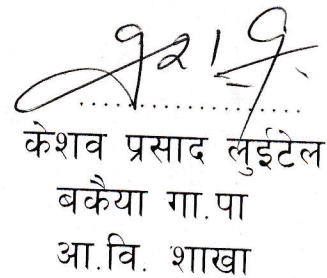 केशव प्रसाद लुईटेल
बकैया गा.पा
आ.वि. शाखा